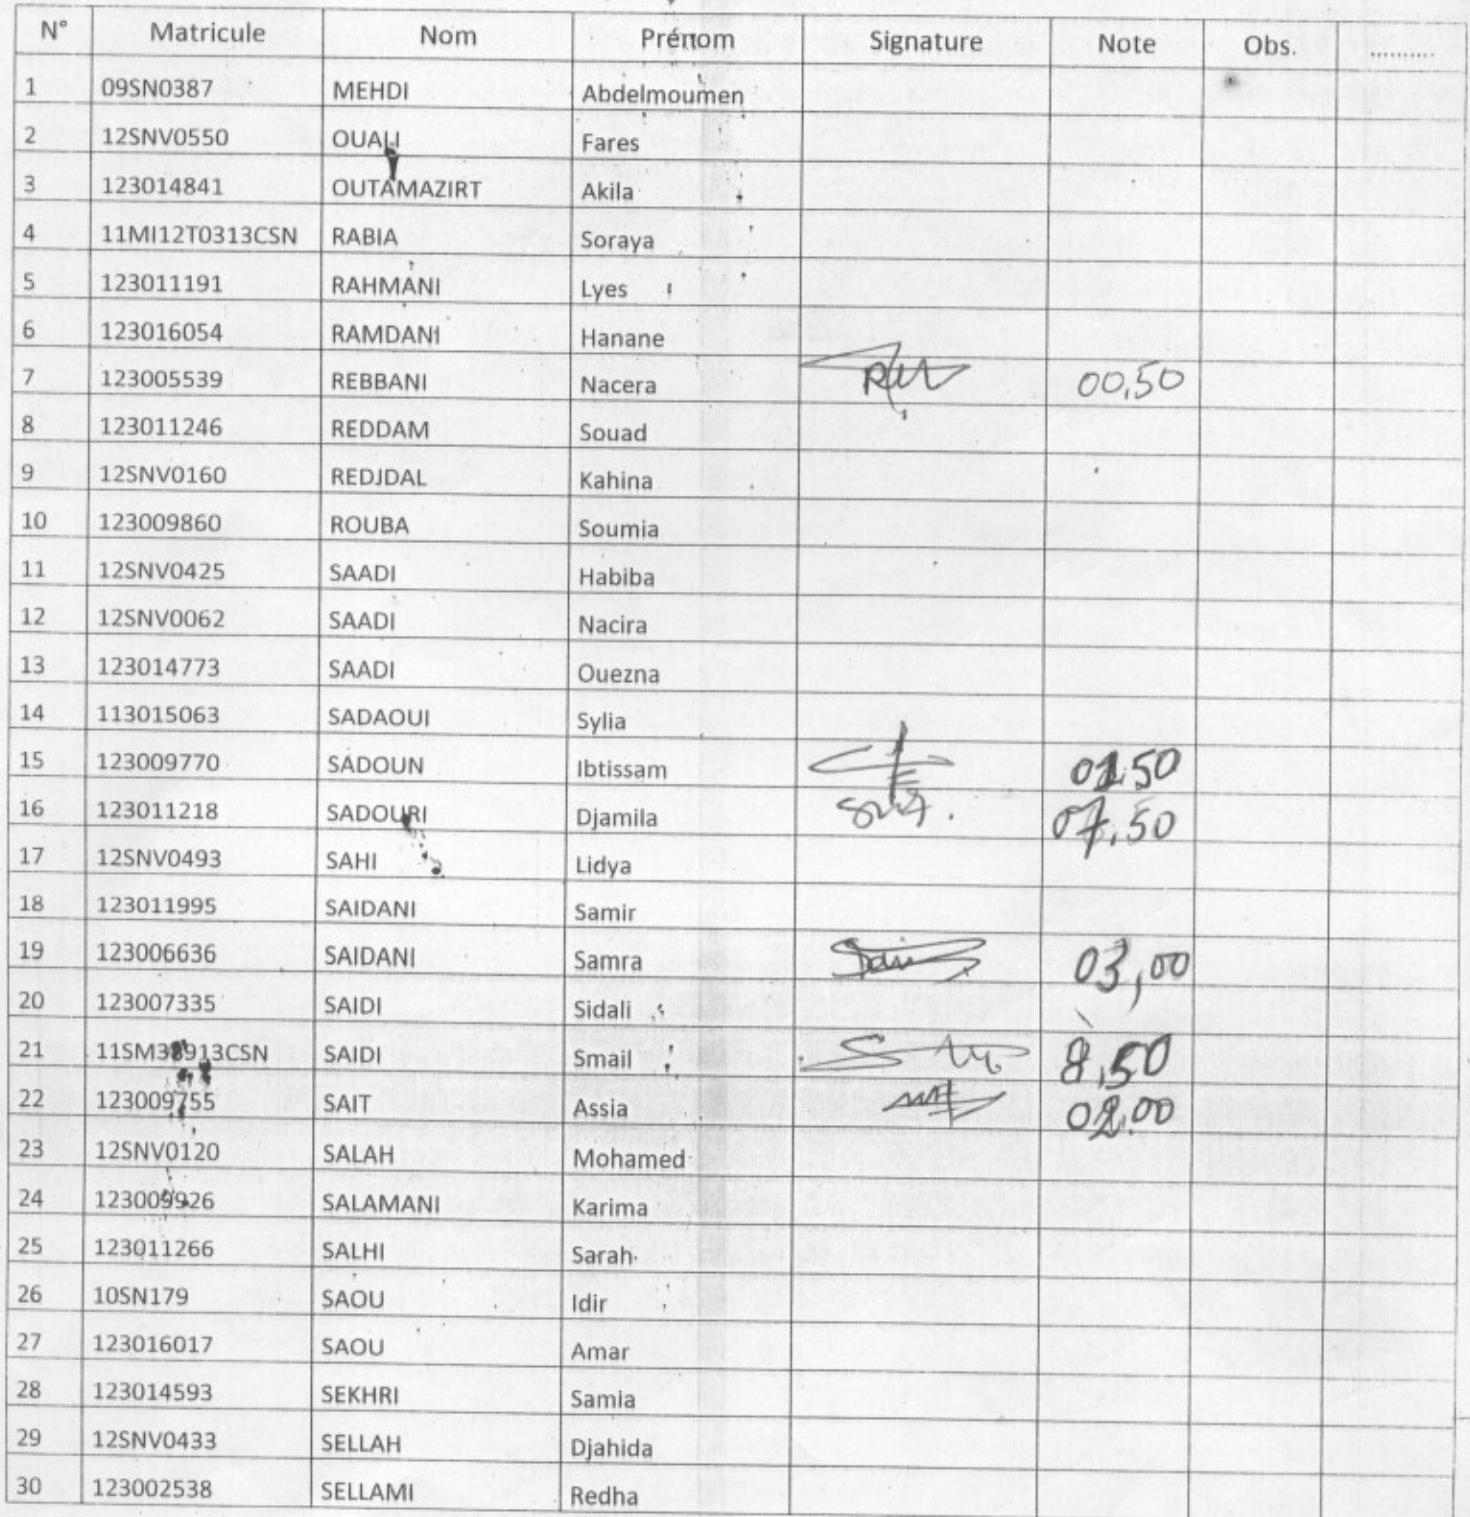 N° Matricule Nom Prénom Signature Note Obs. ...........
1 09SN0387 MEHDI Abdelmoumen
2 12SNV0550 OUALI Fares
3 123014841 OUTAMAZIRT Akila
4 11MI12T0313CSN RABIA Soraya
5 123011191 RAHMANI Lyes
6 123016054 RAMDANI Hanane
7 123005539 REBBANI Nacera 00,50
8 123011246 REDDAM Souad
9 12SNV0160 REDJDAL Kahina
10 123009860 ROUBA Soumia
11 12SNV0425 SAADI Habiba
12 12SNV0062 SAADI Nacira
13 123014773 SAADI Ouezna
14 113015063 SADAOUI Sylia
15 123009770 SADOUN Ibtissam 01.50
16 123011218 SADOURI Djamila 07,50
17 12SNV0493 SAHI Lidya
18 123011995 SAIDANI Samir
19 123006636 SAIDANI Samra 03,00
20 123007335 SAIDI Sidali
21 SAIDI Smail 8,50
22 123009755 SAIT Assia 02.00
23 12SNV0120 SALAH Mohamed
24 123009926 SALAMANI Karima
25 123011266 SALHI Sarah
26 10SN179 SAOU Idir
27 123016017 SAOU Amar
28 123014593 SEKHRI Samia
29 12SNV0433 SELLAH Djahida
30 123002538 SELLAMI Redha